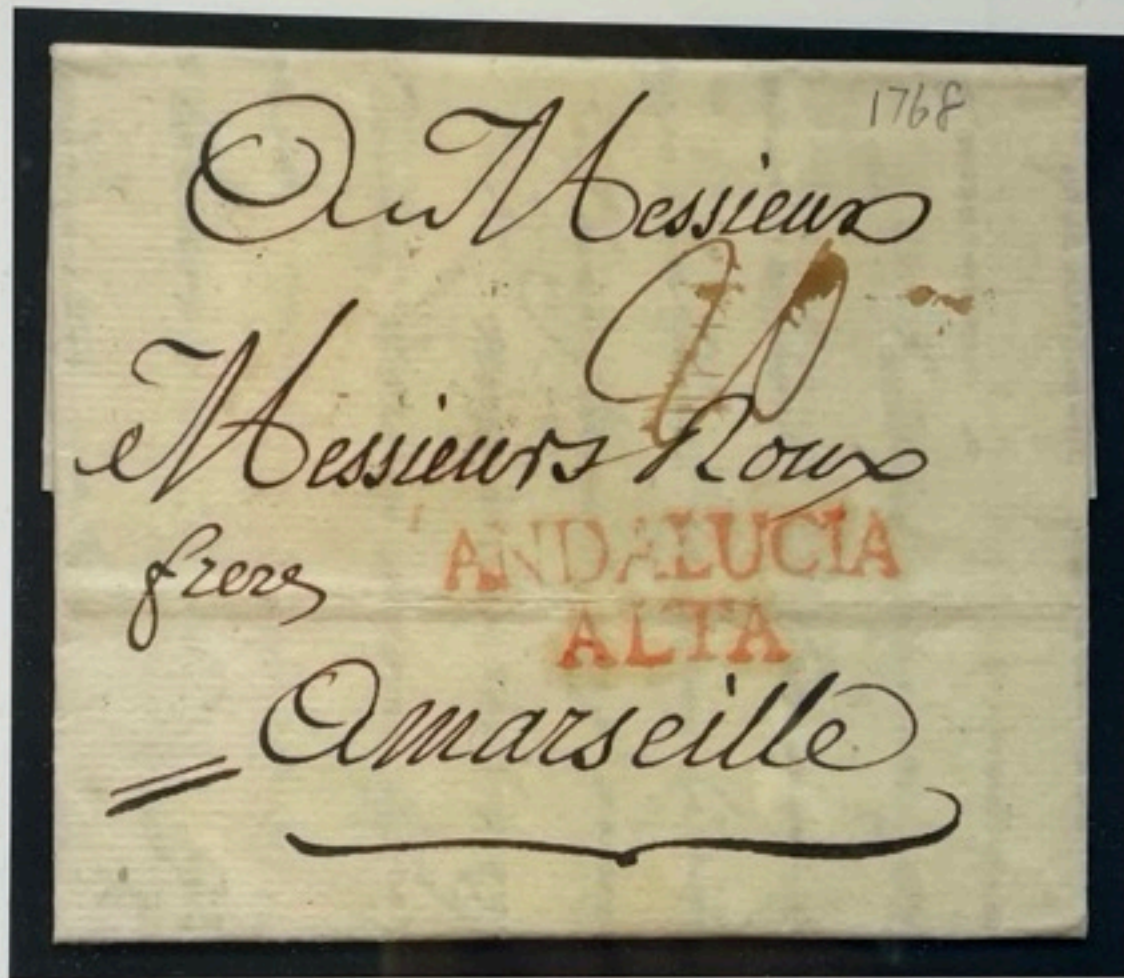 1768
Au Messieurs
Messieurs Roux
freres
ANDALUCIA
ALTA
Amarseille